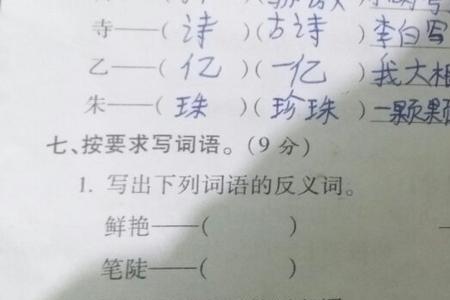 寺——(诗)(古诗)李白写
乙——(亿)(一亿)我大相
朱——(珠)(珍珠)一颗颗
七、按要求写词语。(9分)
1. 写出下列词语的反义词。
鲜艳——( )
笔陡——( )